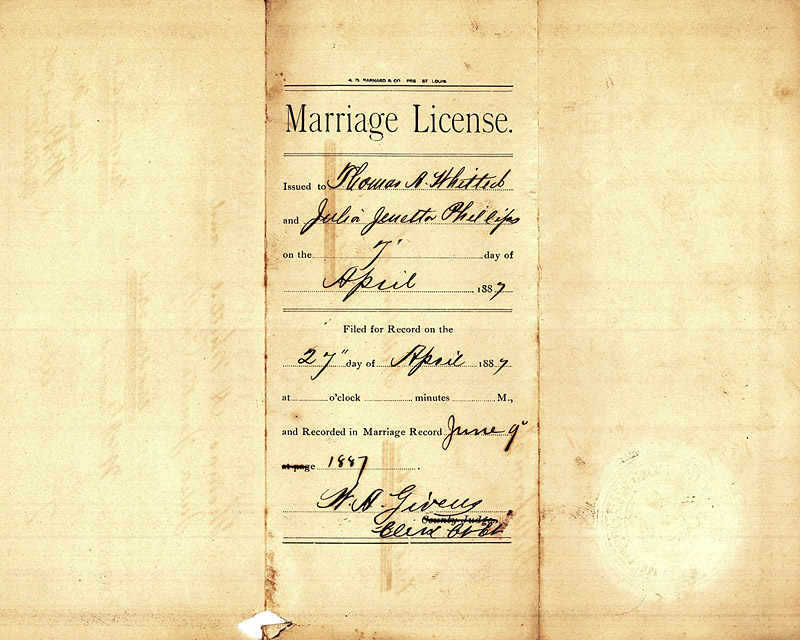 Marriage License.
Issued to Thomas A. Whitted
and Julia Jenetta Phillips
on the 7" day of
April 1887
Filed for Record on the
27" day of April 1887
at o'clock minutes M.,
and Recorded in Marriage Record June 9"
at page 1887.
W. A. Givens
County Judge.
Clerk